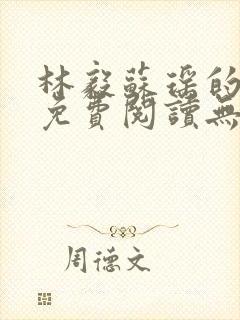 林毅蘇瑶的
免費閱讀無
周德文